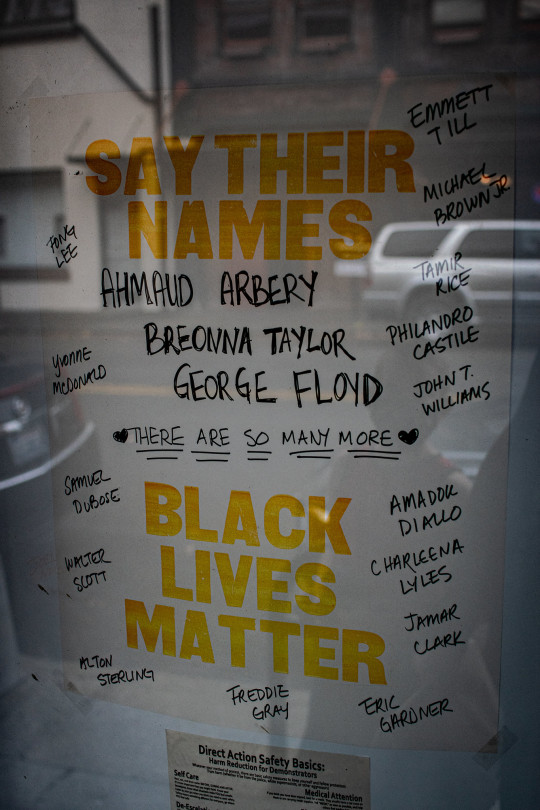 SAY THEIR
NAMES
AHMAUD ARBERY
BREONNA TAYLOR
GEORGE FLOYD
THERE ARE SO MANY MORE
BLACK
LIVES
MATTER
FONG
LEE
YVONNE
MCDONALD
SAMUEL
DUBOSE
WALTER
SCOTT
ALTON
STERLING
FREDDIE
GRAY
ERIC
GARDNER
EMMETT
TILL
MICHAEL
BROWN JR
TAMIR
RICE
PHILANDRO
CASTILE
JOHN T.
WILLIAMS
AMADOU
DIALLO
CHARLEENA
LYLES
JAMAR
CLARK
Direct Action Safety Basics:
Harm Reduction for Demonstrators
Self Care
Medical Attention